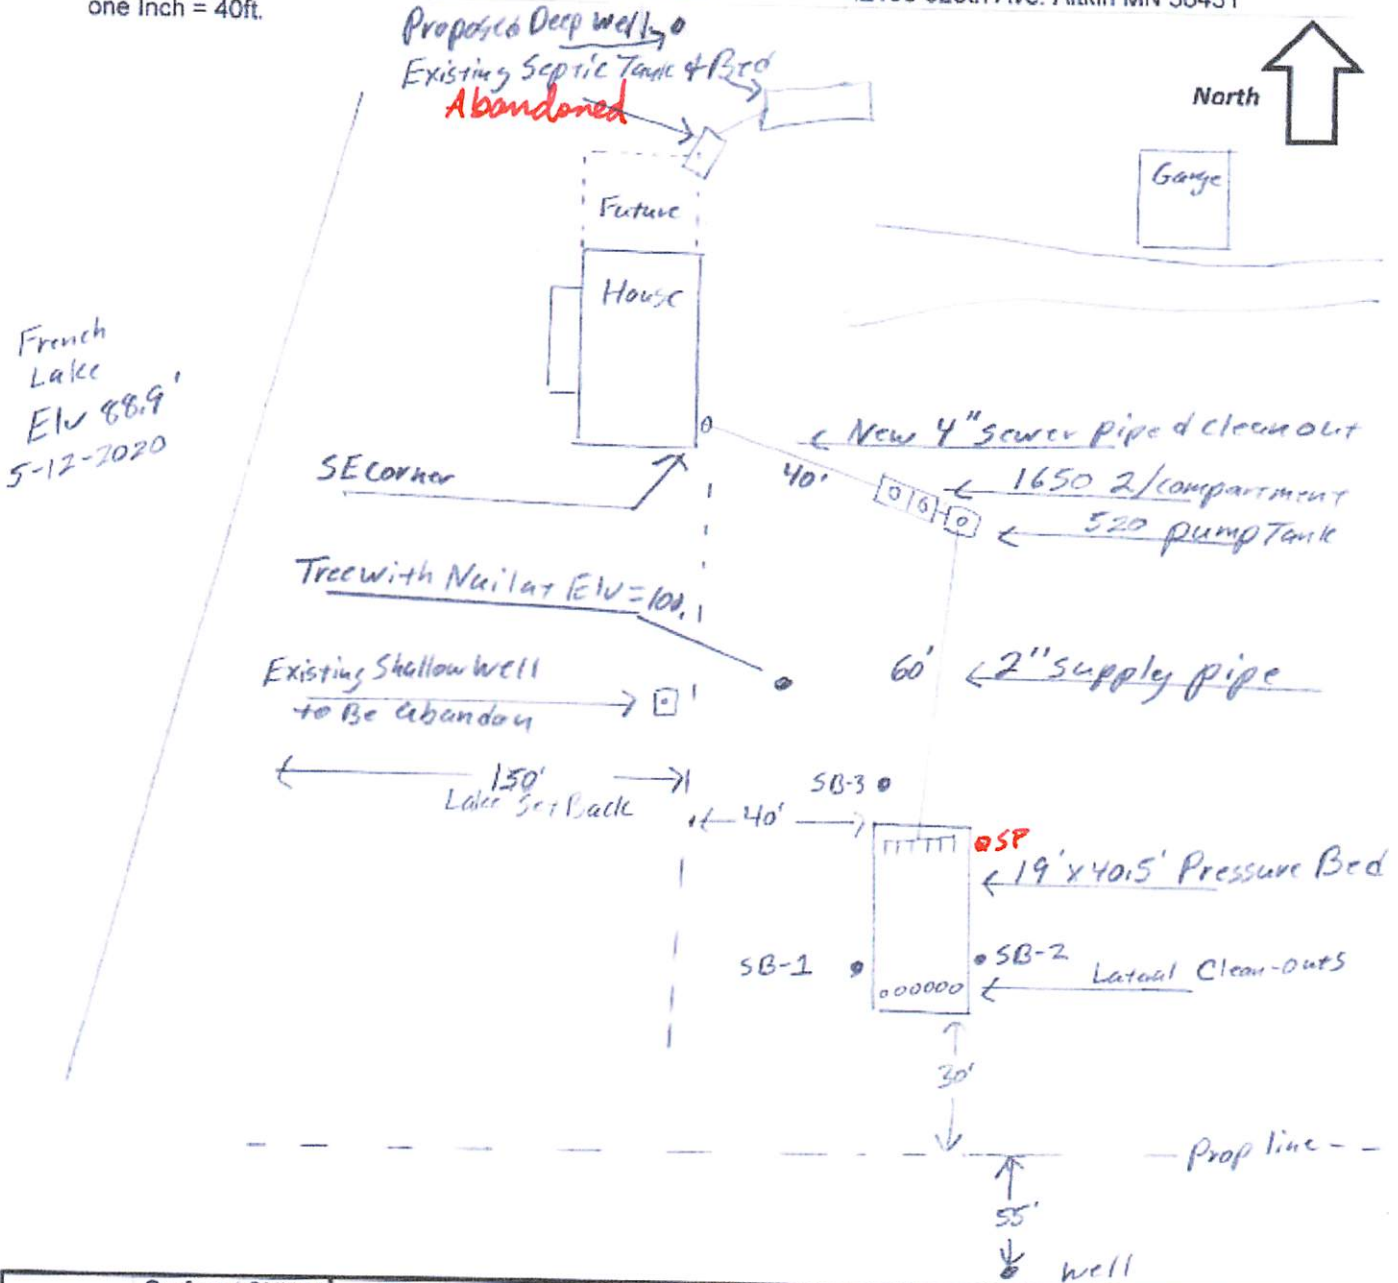 one Inch = 40ft.
Aitkin MN 56431
Proposed Deep Well
Existing Septic Tank & Bed
Abandoned
North
Garage
Future
House
French
Lake
Elv 88.9'
5-12-2020
New 4" sewer pipe & cleanout
40'
1650 2/compartment
520 pump Tank
SE corner
Tree with Nail at Elv = 100.
Existing Shallow Well
to Be abandon
60'
2" supply pipe
150'
Lake Set Back
SB-3
40'
SP
19' x 40.5' Pressure Bed
SB-1
SB-2
Lateral Clean-outs
30'
Prop line
55'
Well